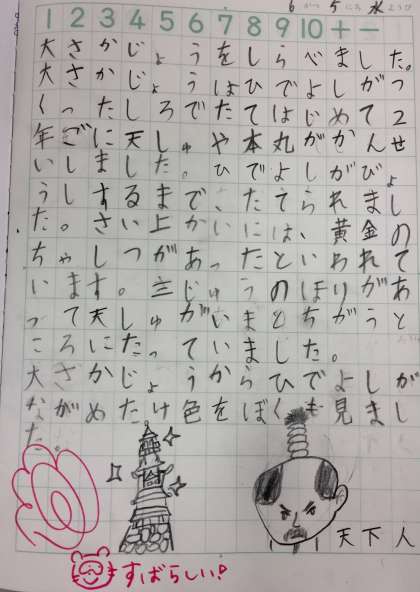 6がつ5にち水ようび
1 2 3 4 5 6 7 8 9 10 + −
大さかじょうをしらべました。
大さかじょうはひでよしがつ
くったしろでたてはじめて2
年ごに天しゅや本丸がかんせ
いしました。ひでよしがびょ
うしするまで、たてられまし
た。さい上かいには、黄金の
ちゃしつがあったといわれて
います。主じゅうのほりがあ
って天しゅがいまとちがうと
ころにたっていました。
大さかじょうからひでよしが
ながめたけ色をぼくも見まし
た。
天下人
すばらしい!